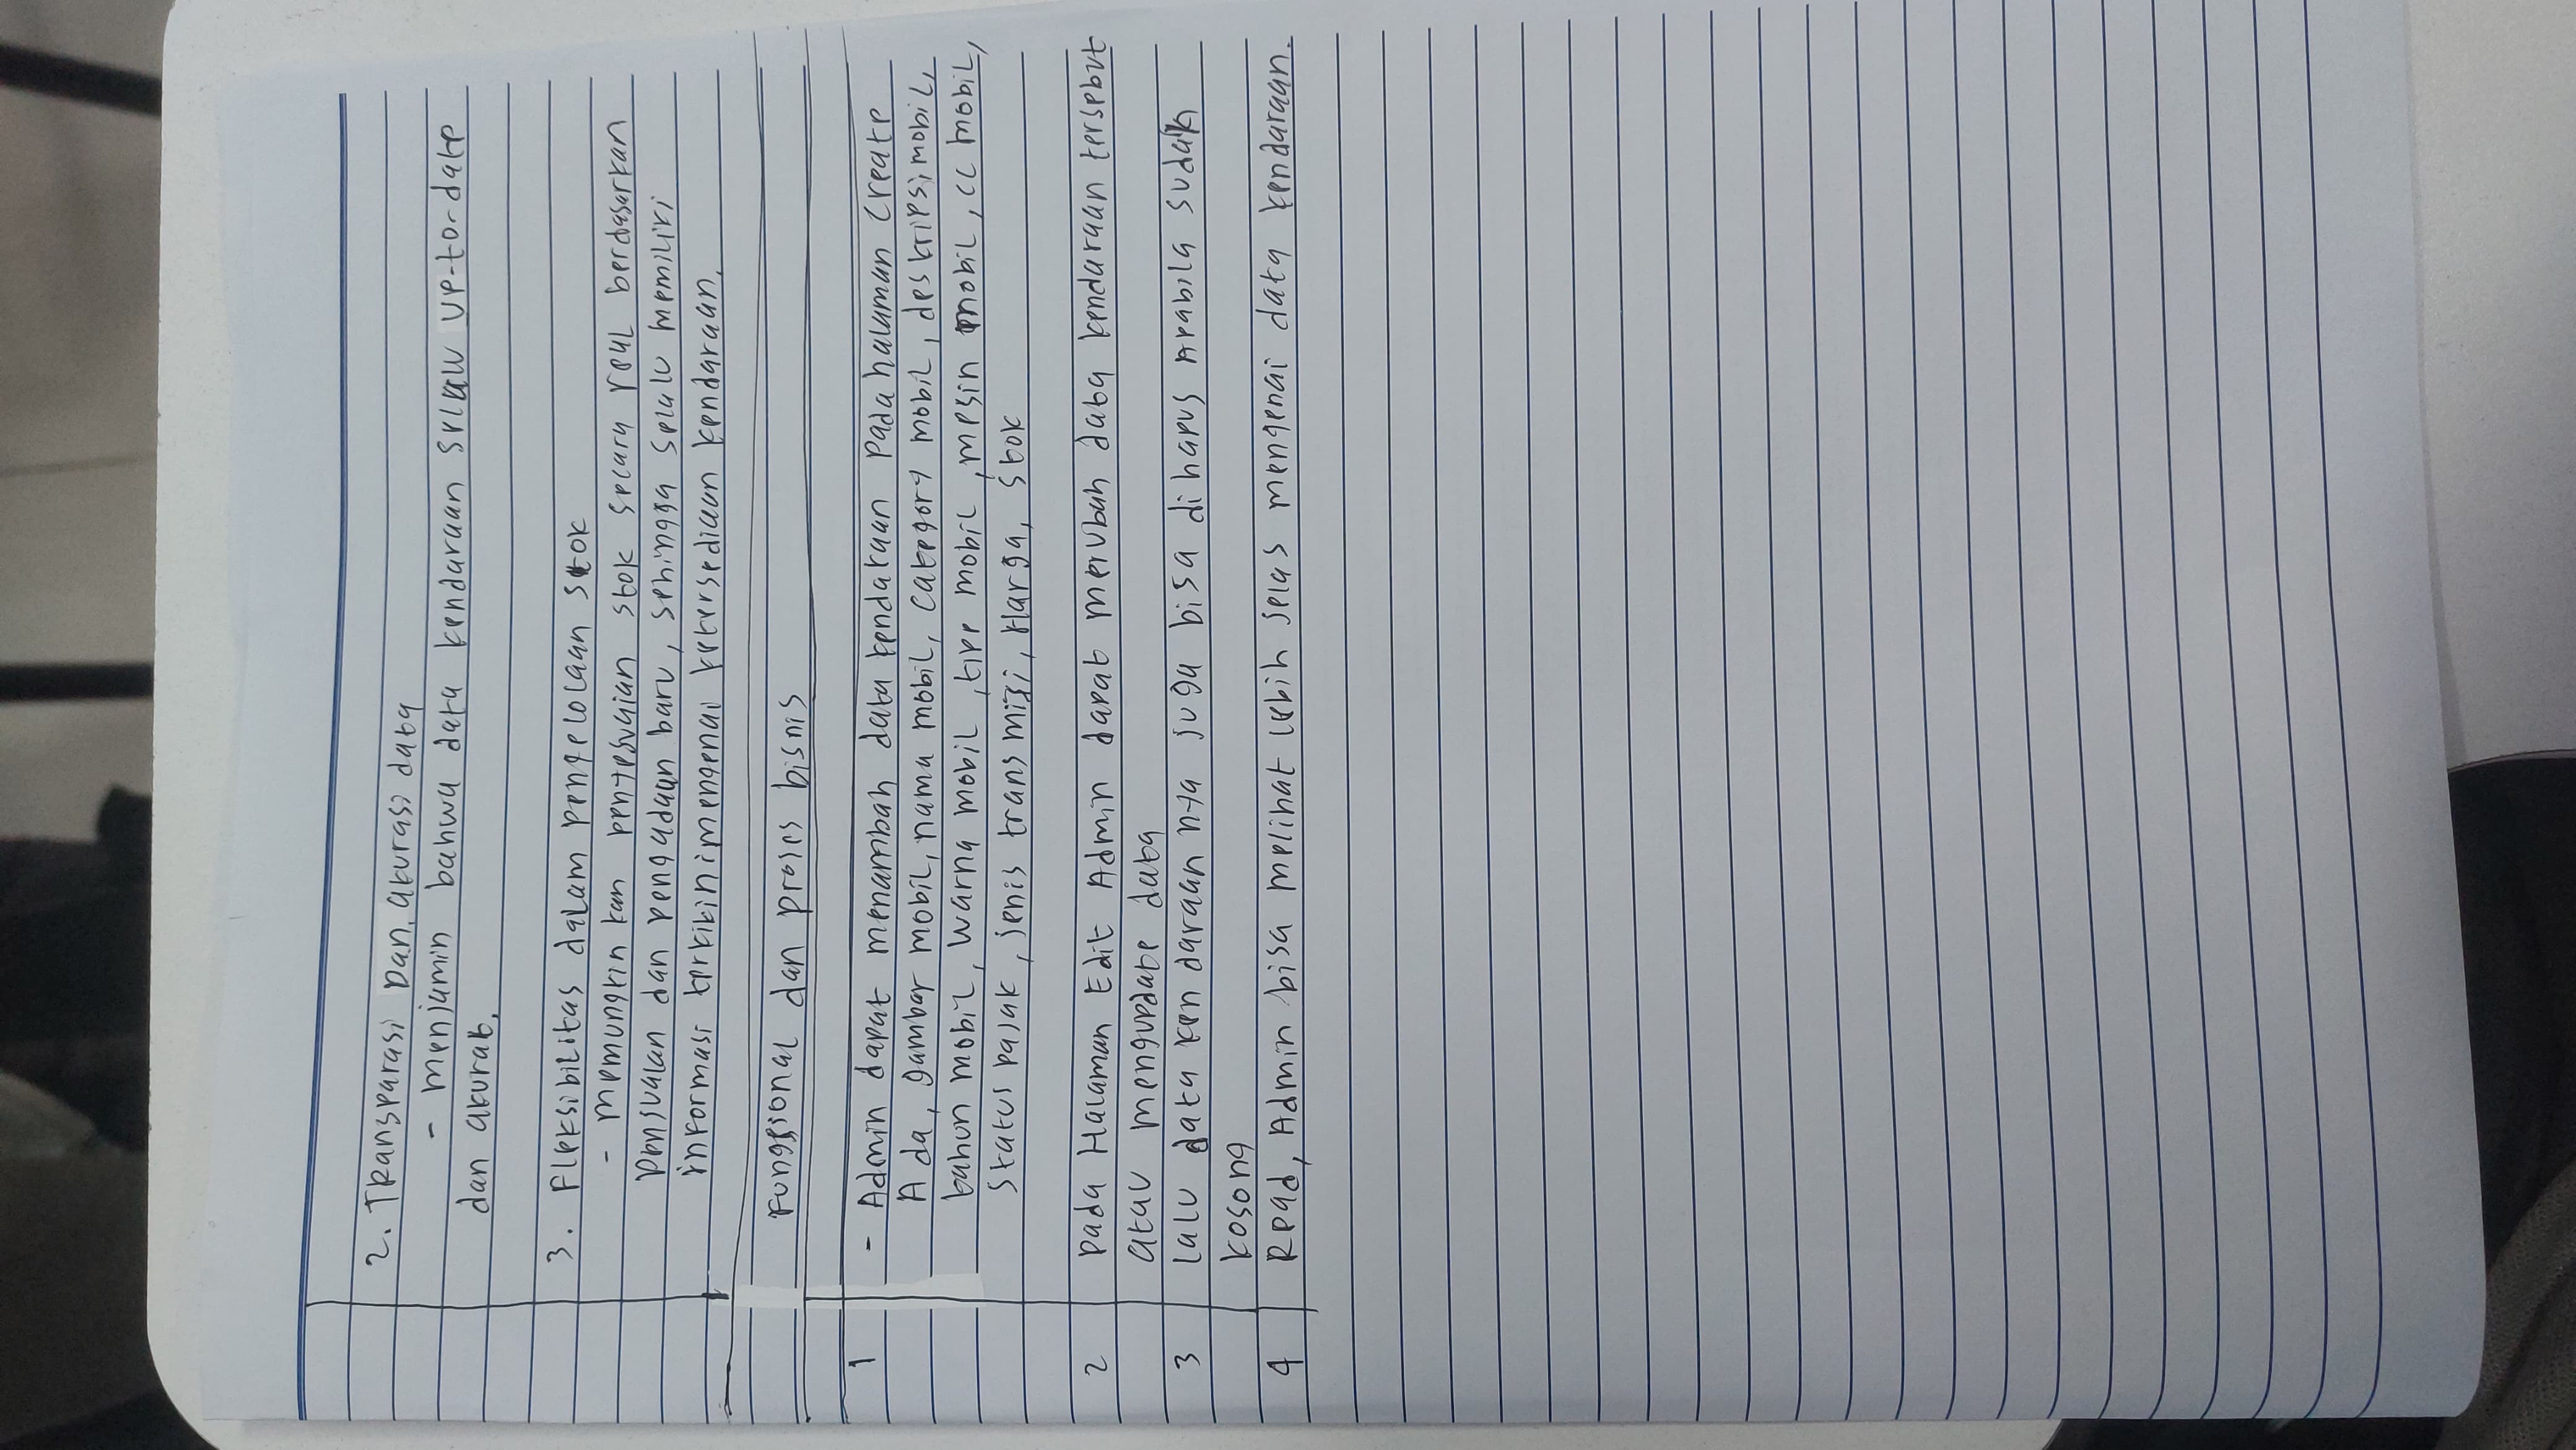 2. Transparasi Dan, akurasi data
- menjamin bahwa data kendaraan selalu up-to-date
dan akurat.
3. Fleksibilitas dalam pengelolaan stok
- memungkin kan penyesuaian stok secara real berdasarkan
penjualan dan pengadaan baru, sehingga selalu memiliki
informasi terkini mengenai ketersediaan kendaraan.
Fungsional dan proses bisnis
1 - Admin dapat menambah data kendaraan pada halaman create
Ada, gambar mobil, nama mobil, category mobil, deskripsi mobil,
tahun mobil, warna mobil, tipe mobil, mesin mobil, cc mobil,
Status pajak, jenis transmisi, Harga, Stok
2 pada Halaman Edit Admin dapat merubah data kendaraan tersebut
atau mengupdate data
3 lalu data kendaraan nya juga bisa dihapus Apabila sudah
kosong
4 Read, Admin bisa melihat lebih jelas mengenai data kendaraan.